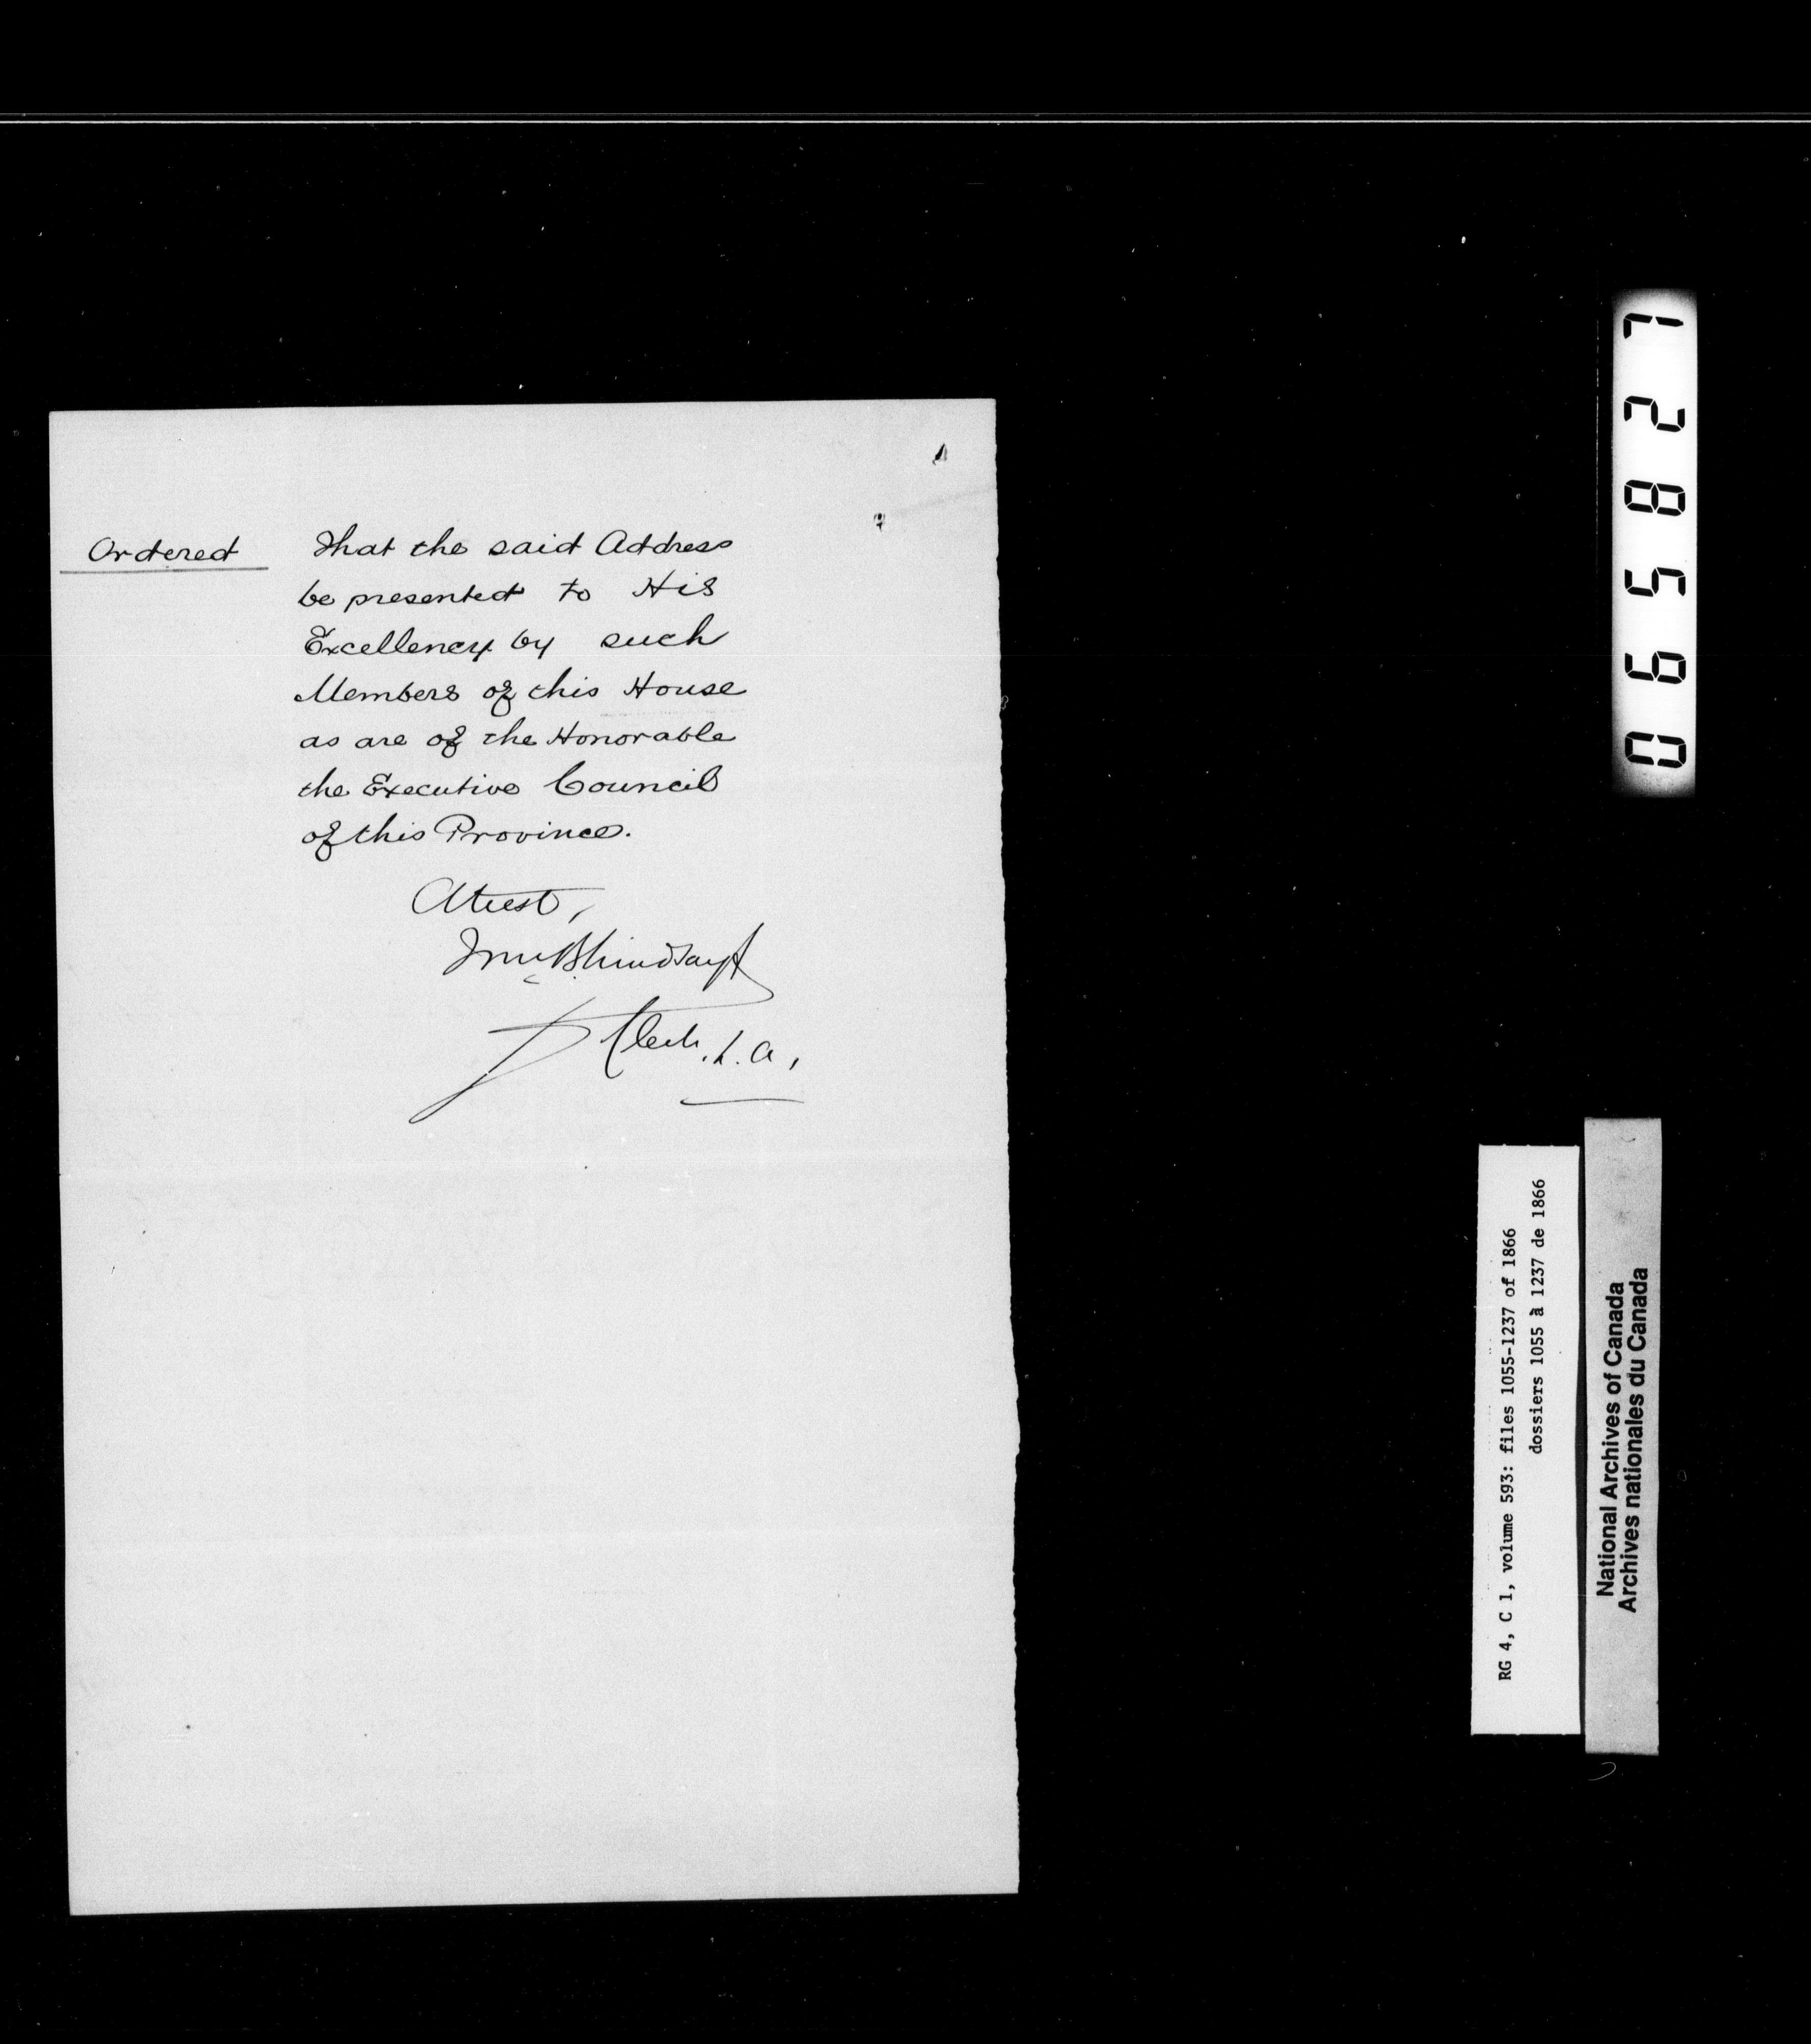 Ordered That the said Address
be presented to His
Excellency by such
Members of this House
as are of the Honorable
the Executive Council
of this Province.
Attest,
Wm B Lindsay
Clerk. L. A.
065827
RG 4, C 1, volume 593: files 1055-1237 of 1866
dossiers 1055 à 1237 de 1866
National Archives of Canada
Archives nationales du Canada